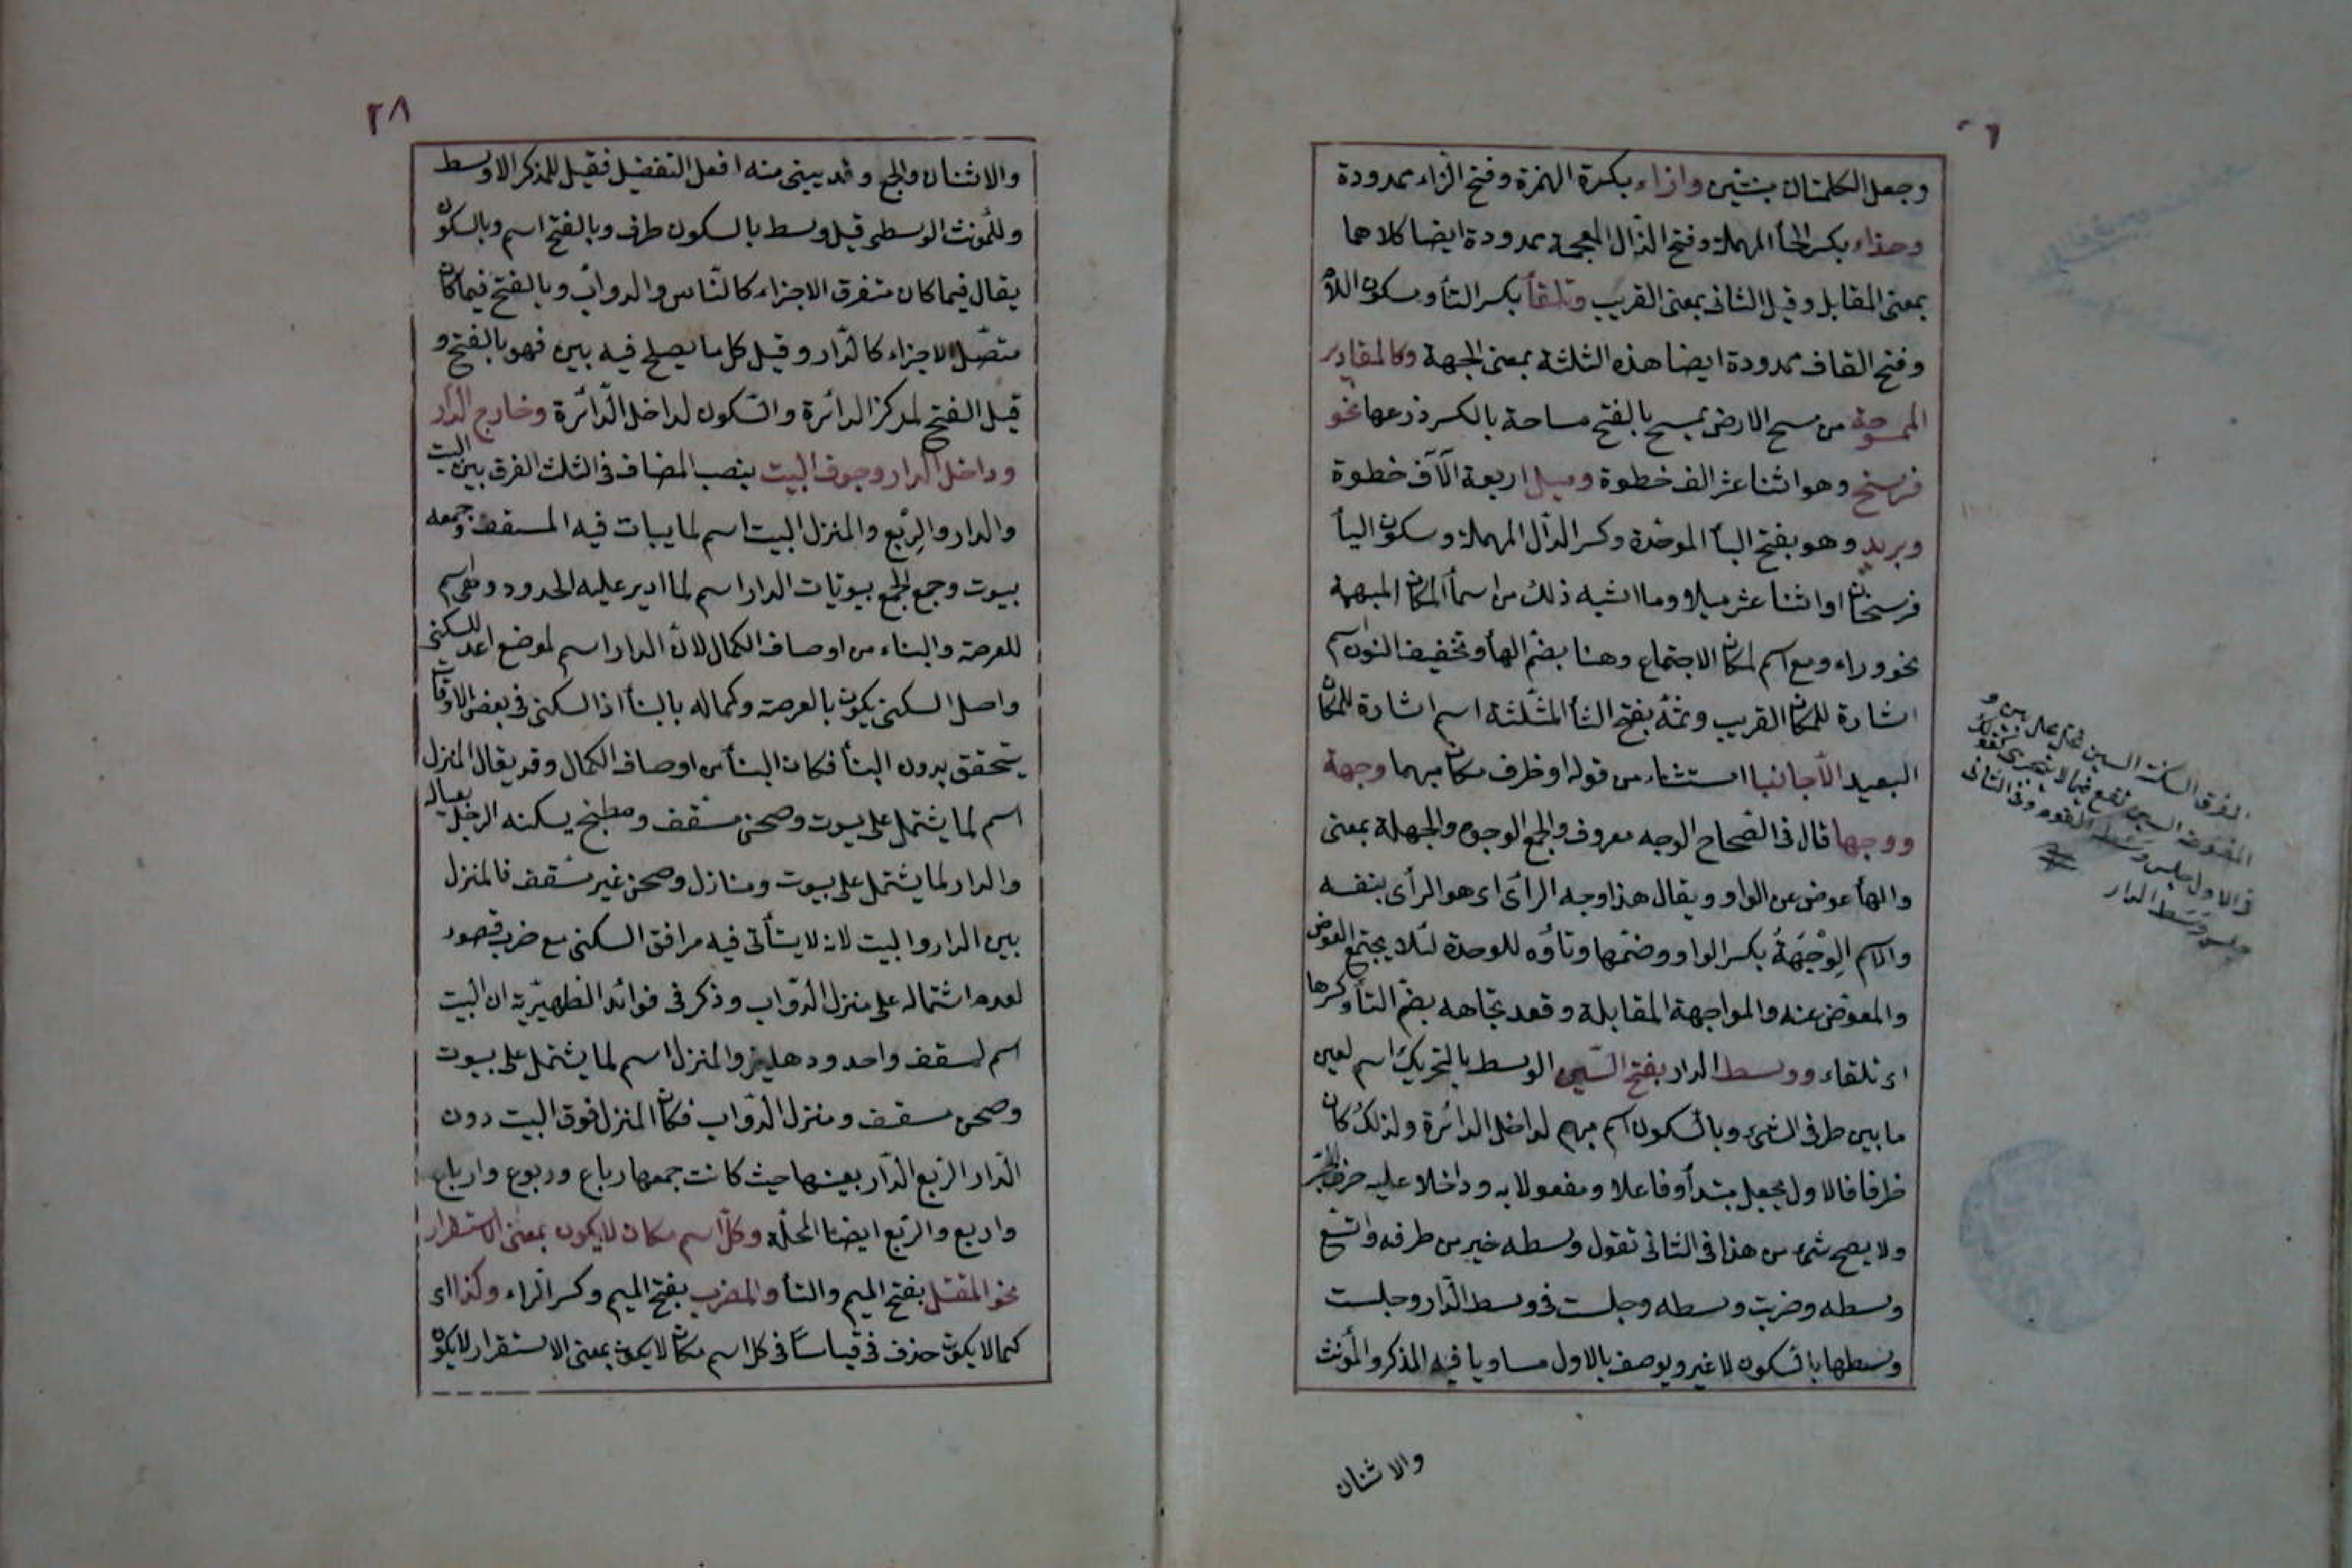 وجعل الكلمتان بنتين وازاء بكسرة الهمزة وفتح الزاء ممدودة
وحذاء بكسر الحأ المهملة وفتح الذال المعجمة ممدودة ايضا كلاهما
بمعنى المقابل وقيل الثانى بمعنى القريب وتلقأ بكسر التأ وسكون اللام
وفتح القاف ممدودة ايضا هذه الثلثة بمعنى الجهة وكالمقادير
الممسوحة من مسح الارض يمسح بالفتح مساحة بالكسر ذرعها نحو
فرسخ وهو اثنا عشر الف خطوة وميل اربعة آلاف خطوة
وبريد وهو بفتح البأ الموحدة وكسر الدال المهملة وسكون اليأ
فرسخان او اثنا عشر ميلا وما اشبه ذلك من اسمأ المكان المبهمة
نحو وراء ومع اسم لمكان الاجتماع وهنا بضم الهأ وتخفيف النون اسم
اشارة للمكان القريب وثمه بفتح الثأ المثلثة اسم اشارة للمكان
البعيد الا جانبا استثناء من قوله او ظرف مكان مبهما وجهة
ووجها قال فى الصحاح الوجه معروف والجمع الوجوه والجهلة بمعنى
والهأ عوض عن الواو ويقال هذا وجه الرأى اى هو الرأى بنفسه
والاسم الوجهة بكسر الواو وضمها وتاؤه للوحدة لئلا يجتمع العوض
والمعوض عنه والمواجهة المقابلة وقعد تجاهه بضم التأ وكسرها
اى تلقاء ووسط الدار بفتح السين الوسط بالتحريك اسم لعين
ما بين طرفى الشئ وبالسكون اسم مبهم لداخل الدائرة ولذلك كان
ظرفا فالاول يجعل مبتدأ وفاعلا ومفعولا به وداخلا عليه حرف الجر
ولا يصح شئ من هذا فى الثانى تقول وسطه خير من طرفه واتسع
وسطه وضربت وسطه وجلست فى وسط الدار وجلست
وسطها بالسكون لا غير ويوصف بالاول مساويا فيه المذكر والمؤنث
والاثنان
جلس وسط القوم وفى الثانى
جلس وسط الدار
٢٨
والاثنان والجمع وقد يبنى منه افعل التفضيل فقيل للمذكر الاوسط
وللمؤنث الوسطى وقيل وسط بالسكون ظرف وبالفتح اسم وبالسكون
يقال فيما كان متفرق الاجزاء كالناس والدواب وبالفتح فيما كان
متصل الاجزاء كالدار وقيل كل ما يصلح فيه بين فهو بالفتح و
قيل الفتح لمركز الدائرة والسكون لداخل الدائرة وخارج الدار
وداخل الدار وجوف البيت ينصب المضاف فى الثلث الفرق بين البيت
والدار والربع والمنزل البيت اسم لما يبات فيه المسقف وجمعه
بيوت وجمع الجمع بيوتات الدار اسم لما ادير عليه الحدود وهى اسم
للعرصة والبناء من اوصاف الكمال لان الدار اسم لموضع اعد للسكنى
واصل السكنى يكون بالعرصة وكماله بالبنأ اذ السكنى فى بعض الاوقات
يتحقق بدون البنأ فكان البنأ من اوصاف الكمال وقد يقال المنزل
اسم لما يشتمل على بيوت وصحن مسقف ومطبخ يسكنه الرجل بعياله
والدار لما يشتمل على بيوت ومنازل وصحن غير مسقف فالمنزل
بين الدار والبيت لانه لا يتأتى فيه مرافق السكنى مع ضرب قصور
لعدم اشتماله على منزل الدواب وذكر فى فوائد الظهيرية ان البيت
اسم لسقف واحد ودهليز والمنزل اسم لما يشتمل على بيوت
وصحن مسقف ومنزل الدواب فكان المنزل فوق البيت دون
الدار الربع الدار بعينها حيث كانت جمعها رباع وربوع وارباع
واربع والربع ايضا المحلة وكل اسم مكان لا يكون بمعنى الاستقرار
نحو المقتل بفتح الميم والتأ والمضرب بفتح الميم وكسر الراء وكذا اى
كما لا يكون حذف فى قياسا فى كل اسم مكان لا يكون بمعنى الاستقرار لا يكون